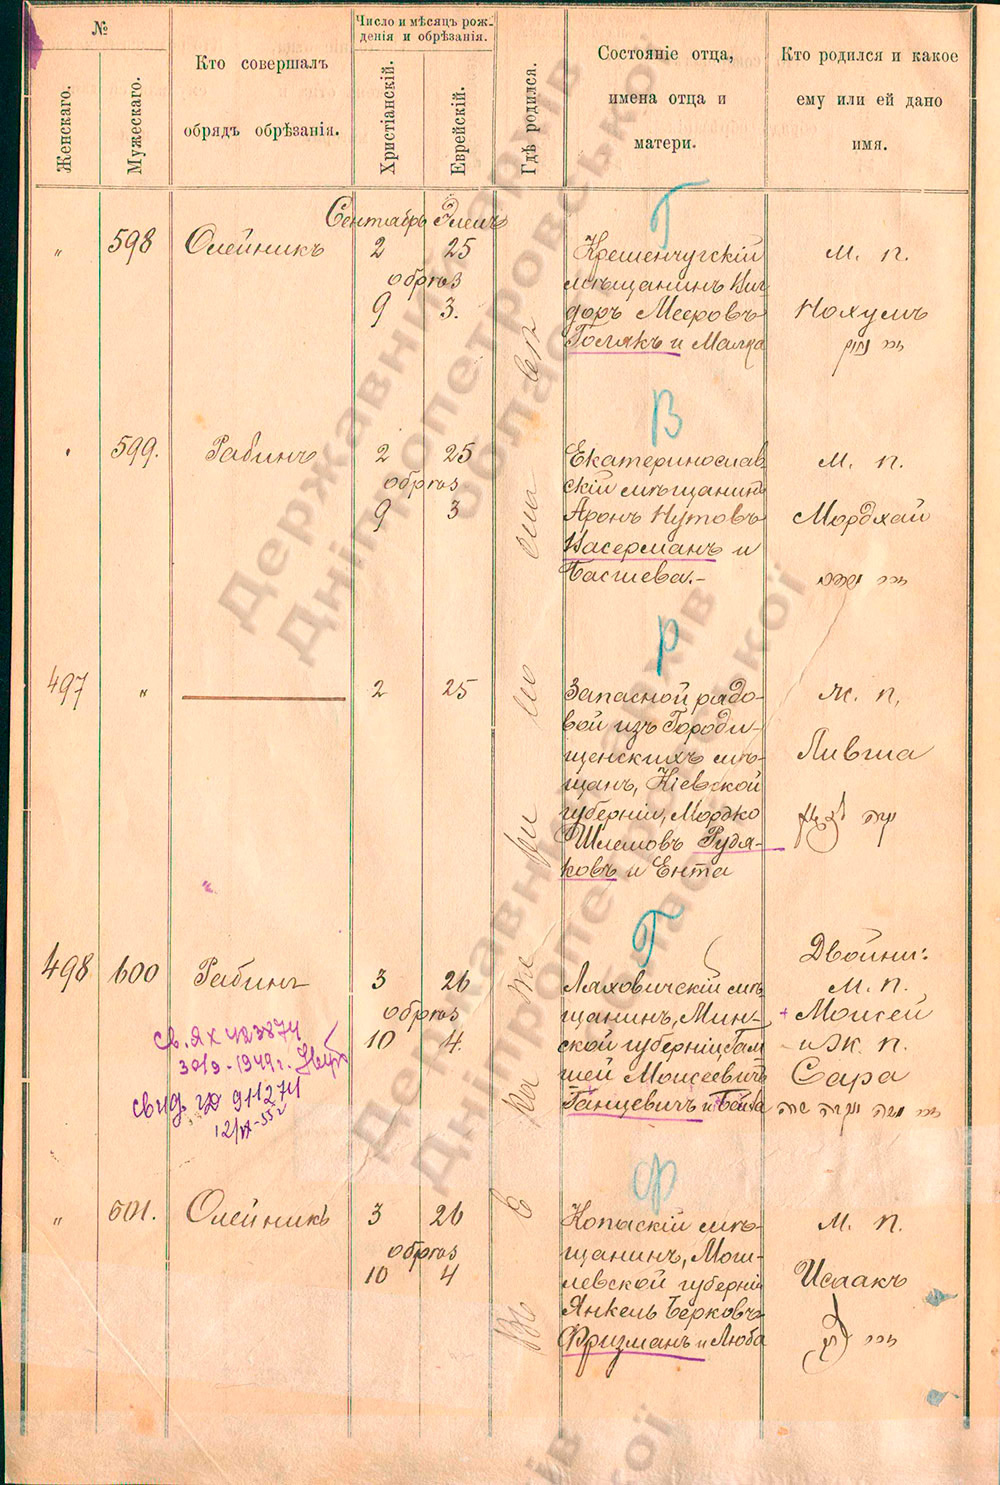 №
Женскаго.
Мужескаго.
Кто совершалъ
обрядъ обрѣзанія.
Число и мѣсяцъ рож-
денія и обрѣзанія.
Христіанскій.
Еврейскій.
Гдѣ родился.
Состояніе отца,
имена отца и
матери.
Кто родился и какое
ему или ей дано
имя.
Сентябрь Элелъ
Г
" 598 Олейникъ 2 25
обрѣз
9 3.
Кременчугскій
мѣщанинъ Виг
доръ Мееровъ
Голякъ и Малка
м. п.
Нохумъ
В
599. Рабинъ 2 25
обрѣз
9 3
Екатеринослав
скій мѣщанинъ
Аронъ Нутовъ
Васерманъ и
Басшева.-
м. п.
Мордхай
Р
497 " 2 25
Запасной рядо-
вой изъ Городи-
щенскихъ мѣ-
щанъ, Кіевской
губерніи, Мордко
Шлемовъ Рудя-
ковъ и Ента
ж. п.
Ливша
Г
498 600 Рабинъ 3 26
обрѣз
10 4.
Ляховичскій мѣ
щанинъ, Мин-
ской губерніи Гам
шей Моисеевичъ
Ганцевичъ и
Двойни:
м. п.
+ Моисей
и ж. п.
Сара
св. ЯХ 423874
30/9-1949г.
свид. 911274
Ф
" 601. Олейникъ 3 26
обрѣз
10 4
Копыскій мѣ-
щанинъ, Моги-
левской губерніи
Янкель Берковъ
Фризманъ и Люба
м. п.
Исаакъ
Державний архів
Дніпропетровської
області
Державний архів
Дніпропетровської
області